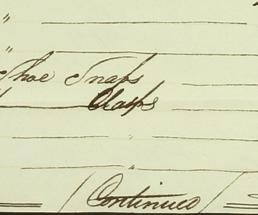 "
"
Shoe Snaps
" Clasps
"
"
(Continued)